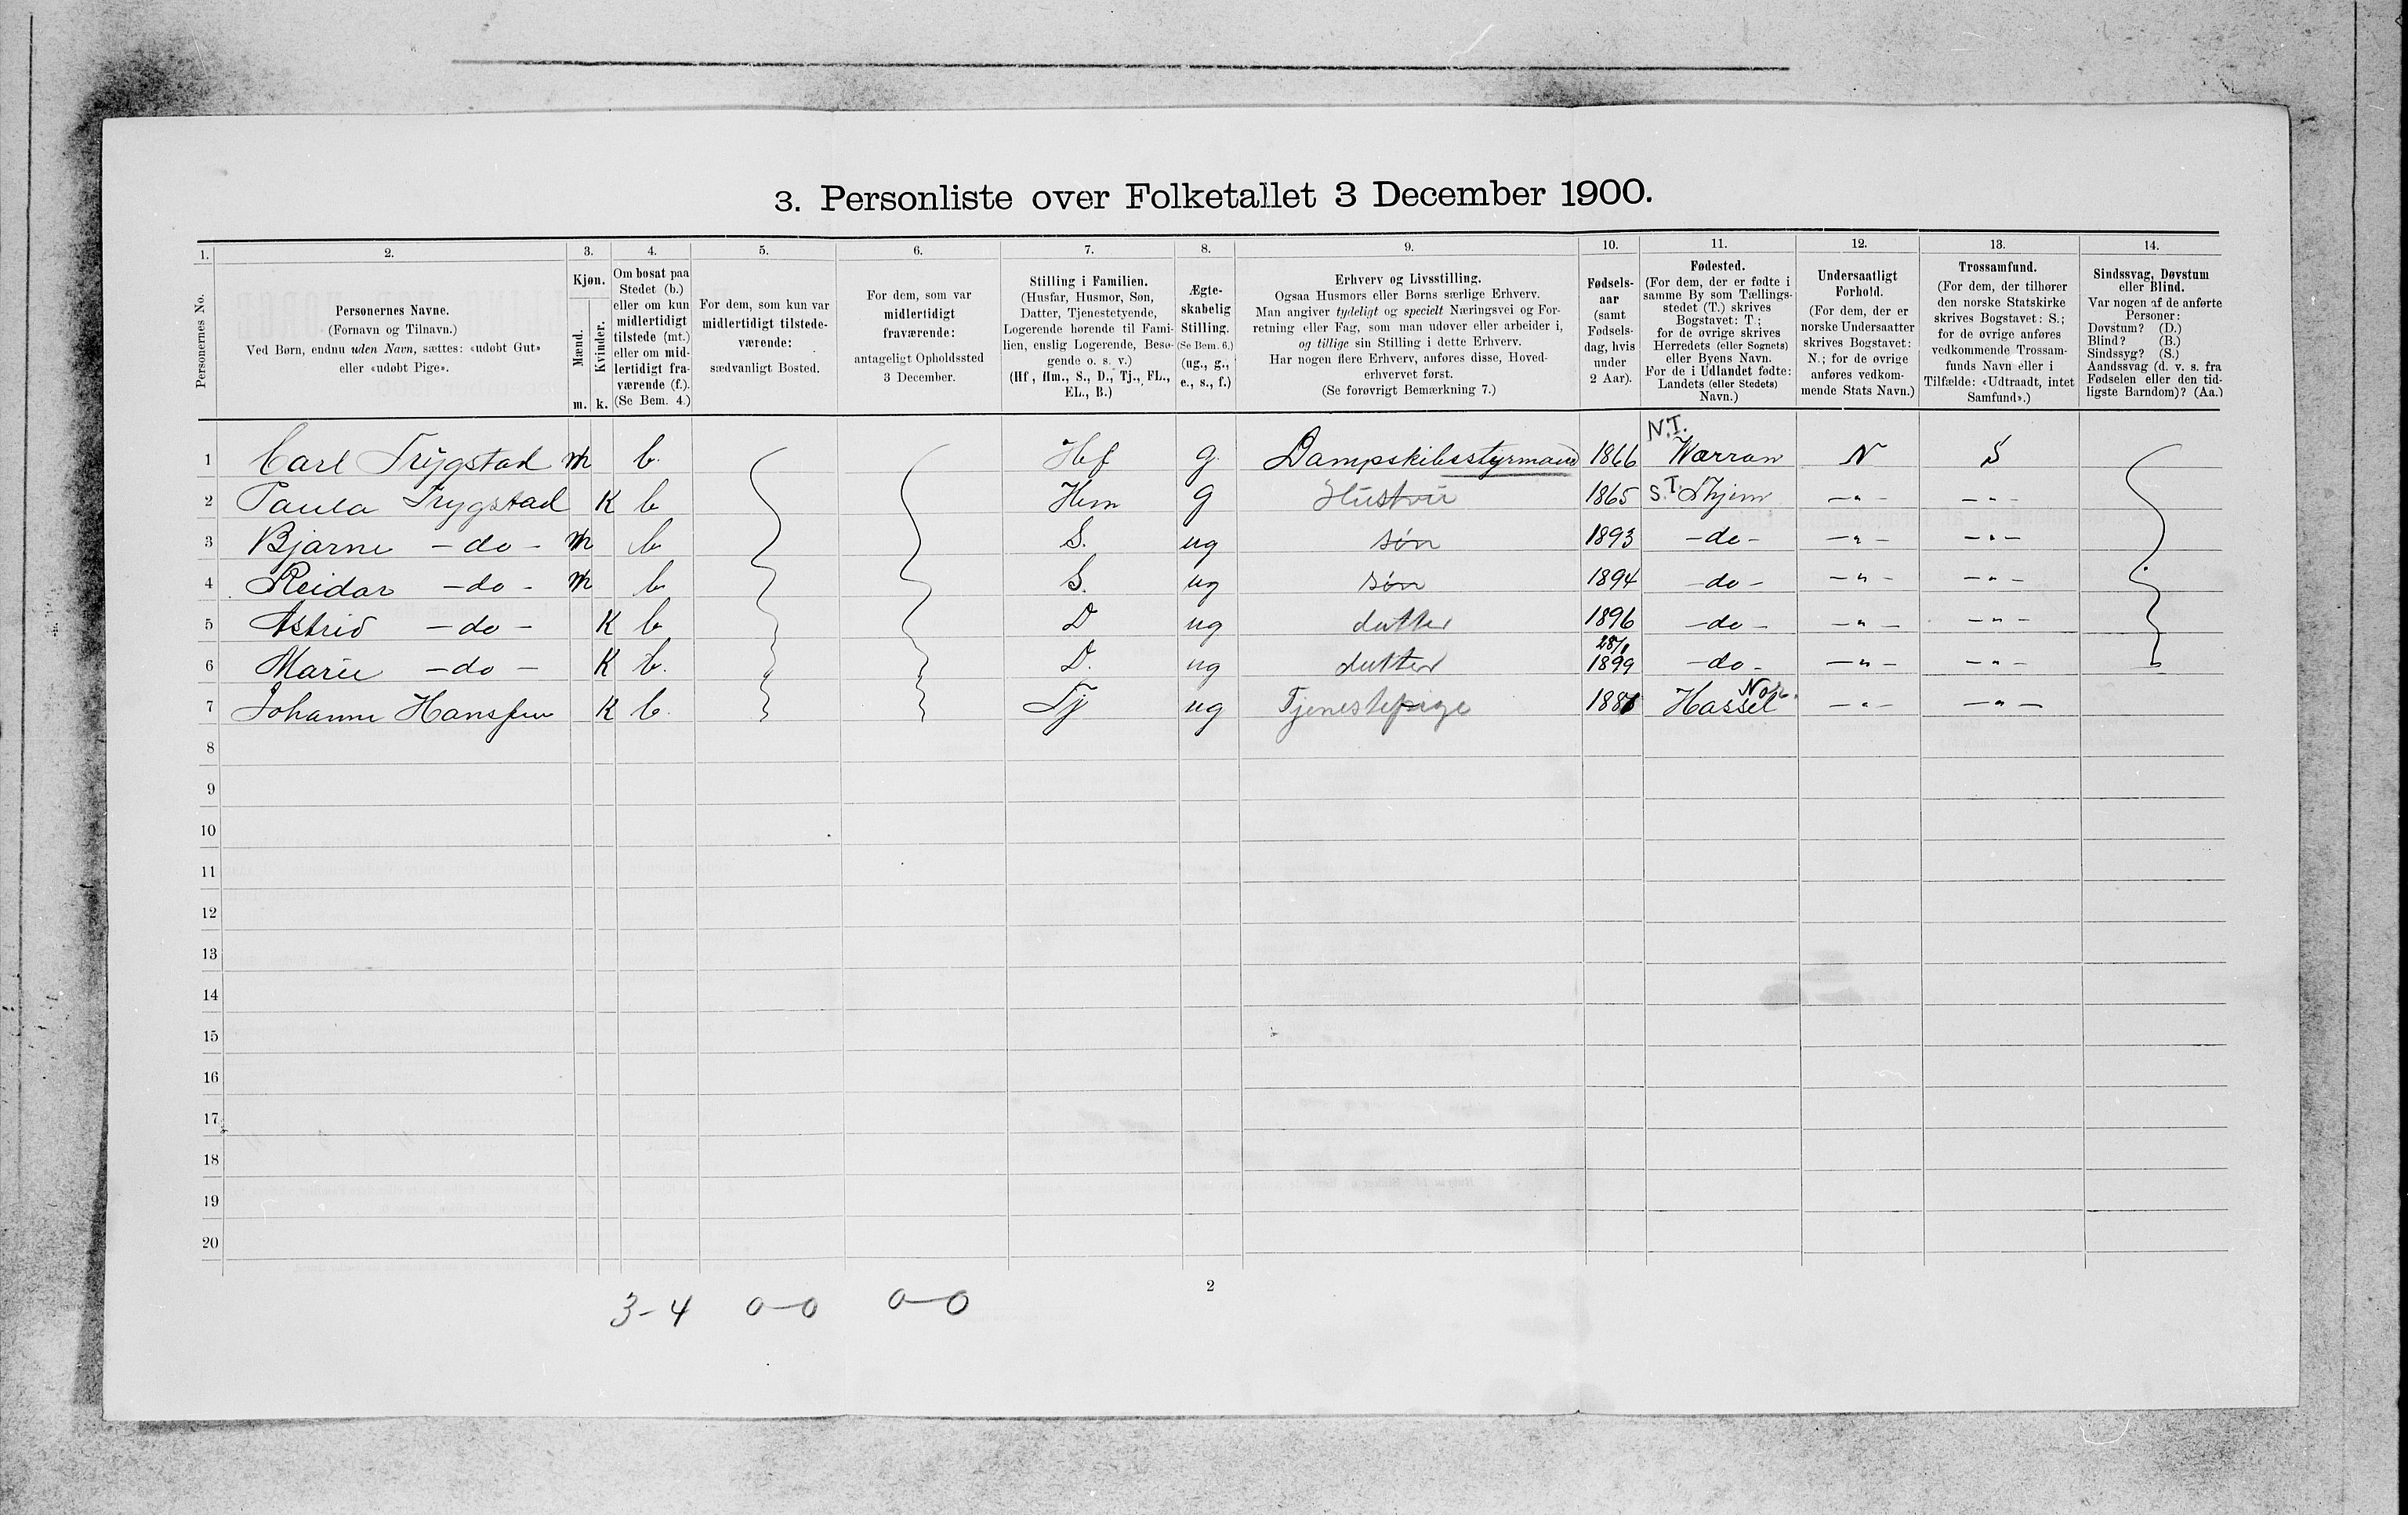 3. Personliste over Folketallet 3 December 1900.
1. 2. 3. 4. 5. 6. 7. 8. 9. 10. 11. 12. 13. 14.
Personernes No.
Personernes Navne.
(Fornavn og Tilnavn.)
Ved Børn, endnu uden Navn, sættes: «udøbt Gut»
eller «udøbt Pige».
Kjøn.
Mænd.
Kvinder.
m. k.
Om bosat paa
Stedet (b.)
eller om kun
midlertidigt
tilstede (mt.)
eller om mid-
lertidigt fra-
værende (f.).
(Se Bem. 4.)
For dem, som kun var
midlertidigt tilstede-
værende:
sædvanligt Bosted.
For dem, som var
midlertidigt
fraværende:
antageligt Opholdssted
3 December.
Stilling i Familien.
(Husfar, Husmor, Søn,
Datter, Tjenestetyende,
Logerende hørende til Fami-
lien, enslig Logerende, Besø-
gende o. s. v.)
(Hf., Hm., S., D., Tj., FL.,
EL., B.)
Ægte-
skabelig
Stilling.
(Se Bem. 6.)
(ug., g.,
e., s., f.)
Erhverv og Livsstilling.
Ogsaa Husmors eller Børns særlige Erhverv.
Man angiver tydeligt og specielt Næringsvei og For-
retning eller Fag, som man udøver eller arbeider i,
og tillige sin Stilling i dette Erhverv.
Har nogen flere Erhverv, anføres disse, Hoved-
erhvervet først.
(Se forøvrigt Bemærkning 7.)
Fødsels-
aar
(samt
Fødsels-
dag, hvis
under
2 Aar).
Fødested.
(For dem, der er fødte i
samme By som Tællings-
stedet (T.) skrives
Bogstavet: T.;
for de øvrige skrives
Herredets (eller Sognets)
eller Byens Navn.
For de i Udlandet fødte:
Landets (eller Stedets)
Navn.)
Undersaatligt
Forhold.
(For dem, der er
norske Undersaatter
skrives Bogstavet:
N.; for de øvrige
anføres vedkom-
mende Stats Navn.)
Trossamfund.
(For dem, der tilhører
den norske Statskirke
skrives Bogstavet: S.;
for de øvrige anføres
vedkommende Trossam-
funds Navn eller i
Tilfælde: «Udtraadt, intet
Samfund».)
Sindssvag, Døvstum
eller Blind.
Var nogen af de anførte
Personer:
Døvstum? (D.)
Blind? (B.)
Sindssyg? (S.)
Aandssvag (d. v. s. fra
Fødselen eller den tid-
ligste Barndom)? (Aa.)
N.T.
1 Carl Trygstad m b. Hf g. Dampskibsstyrmand 1866 Warran N S
2 Paula Trygstad K b Hm g Hustru 1865 S.T. Thjem -"- -"-
3 Bjarne -do- m b S. ug søn 1893 -do- -"- -"-
4 Reidar -do- m b S. ug søn 1894 -do- -"- -"-
5 Astrid -do- K b D ug datter 1896 -do- -"- -"-
28/1
6 Marie -do- K b. D. ug datter 1899 -do- -"- -"-
7 Johanne Hanssen K b. Tj ug Tjenestepige 1881 Hassel -"- -"-
8
9
10
11
12
13
14
15
16
17
18
19
20
2
3-4 0-0 0-0